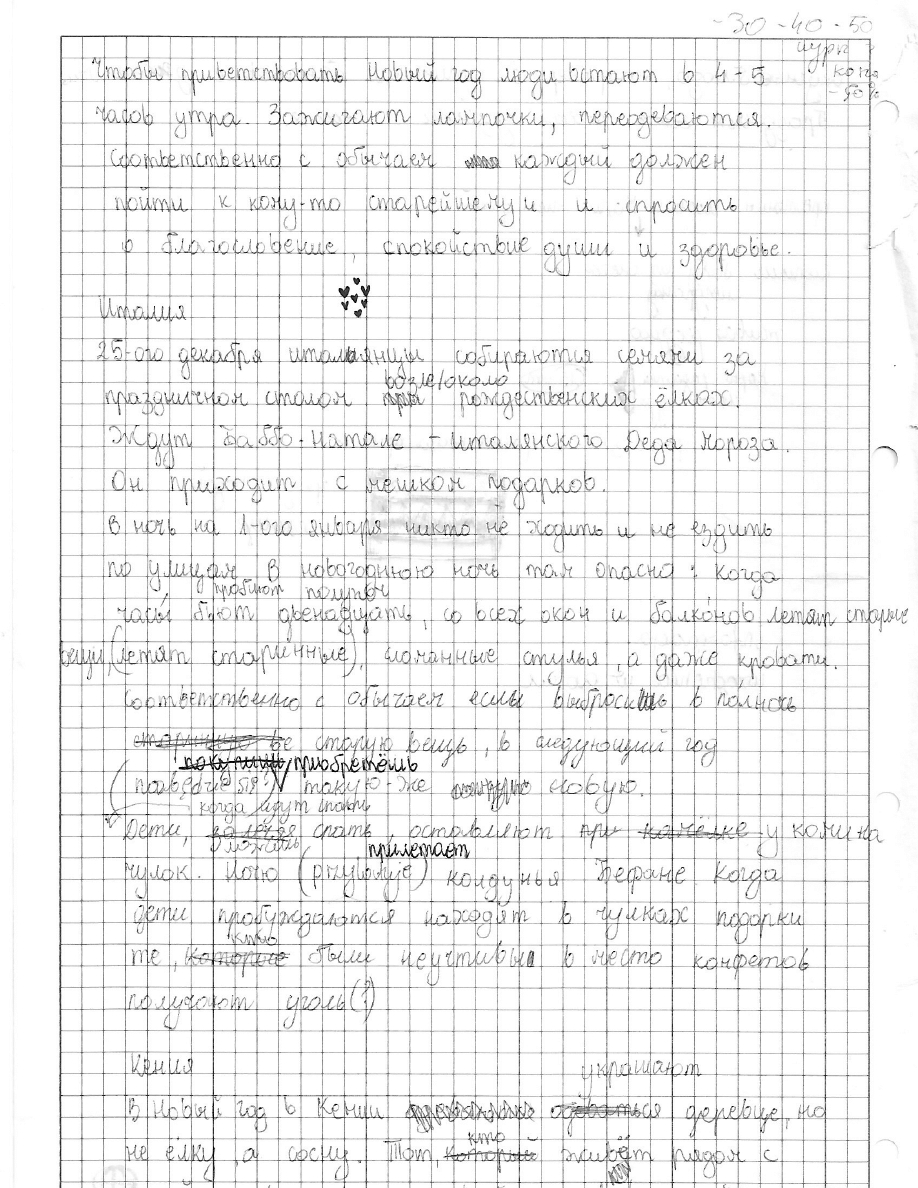 -30-40-50
Чтобы приветствовать Новый год люди встают в 4-5
часов утра. Зажигают лампочки, переодеваются.
Соответственно с обычаем каждый должен
пойти к кому-то старейшему и и спросить
о благословение, спокойствие души и здоровье.
Италия
25-ого декабря итальянцы собираются семями за
возле/около
праздничном столом рождественских ёлках.
Ждут Баббо-Натале – италянского Деда Мороза.
Он приходит с мешком подарков.
В ночь на 1-ого января никто не ходить и не ездить
по улицам. В новогоднюю ночь там опасно: когда
пробиют полночь
часы бьют двенадцать, со всех окон и балконов летят старые
вещи, (летят старинные), сломанные стулья, а даже кровати.
Соответственно с обычаем еслы выбросишь в полночь
старую вещь, в следующий год
приобретёшь
такую-же новую.
когда идут спать
Дети, спать, оставляют у камина
прилетает
чулок. Ночю колдунья Бефане. Когда
дети пробуждаются находят в чулках подарки
кто
те, которые были неучтивы в место конфетов
получают уголь(?)
Кения
украшают
В Новый год в Кении деревце, но
кто
не ёлку, а сосну. Тот, который живёт рядом с